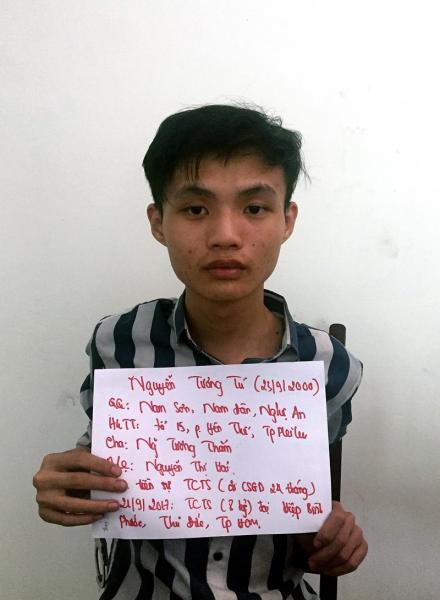 Nguyễn Tương Tú (23/9/2000)
QQ: Nam Sơn, Nam Đàn, Nghệ An
HKTT: tổ 15, p. Yên Thế, Tp Pleiku
Cha: Ng Tương Thắm
Mẹ: Nguyễn Thị Hai.
tiền sự TCTS (đi CSGD 24 tháng)
21/9/2017: TCTS (3 vụ) tại Hiệp Bình
Phước, Thủ Đức, Tp HCM.